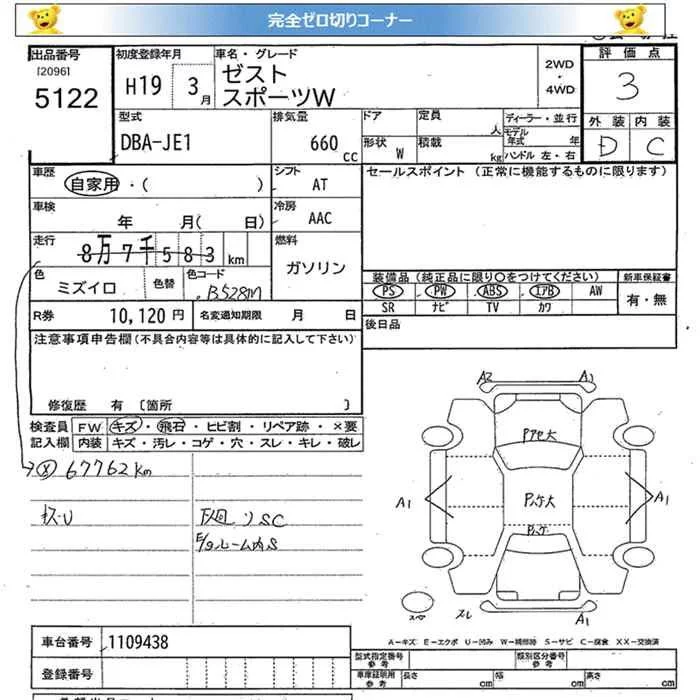 完全ゼロ切りコーナー
出品番号
[2096]
5122
初度登録年月
H19 3月
車名・グレード
ゼスト
スポーツW
2WD
・
4WD
評価点
3
外装 内装
D C
型式
DBA-JE1
排気量
660 cc
ドア
定員
人
形状 W
積載
kg
ディーラー・並行
モデル年式 年
ハンドル 左・右
車歴
自家用・( )
シフト
AT
セールスポイント (正常に機能するものに限ります)
車検
年 月( 日)
冷房
AAC
走行
8万7千583km
燃料
ガソリン
色
ミズイロ
色替
色コード
B528M
装備品 (純正品に限り○をつけてください)
新車保証書
PS PW ABS エアB AW
SR ナビ TV カワ
有・無
R券
10,120円
名変通知期限 月 日
後日品
注意事項申告欄(不具合内容等は具体的に記入して下さい)
修復歴 有 〔箇所 〕
検査員記入欄
FW キズ・飛石・ヒビ割・リペア跡・×要
内装 キズ・汚レ・コゲ・穴・スレ・キレ・破レ
67762km
下廻りSC
ルーム内S
A2 A1
Pアセ大
A1 A1
A1
スレ
A-キズ E-エクボ U-凹み W-補修跡 S-サビ C-腐食 XX-交換済
車台番号
1109438
登録番号
型式指定番号
参考
類別区分番号
参考
車庫証明用
参考
長さ cm
幅 cm
高さ cm